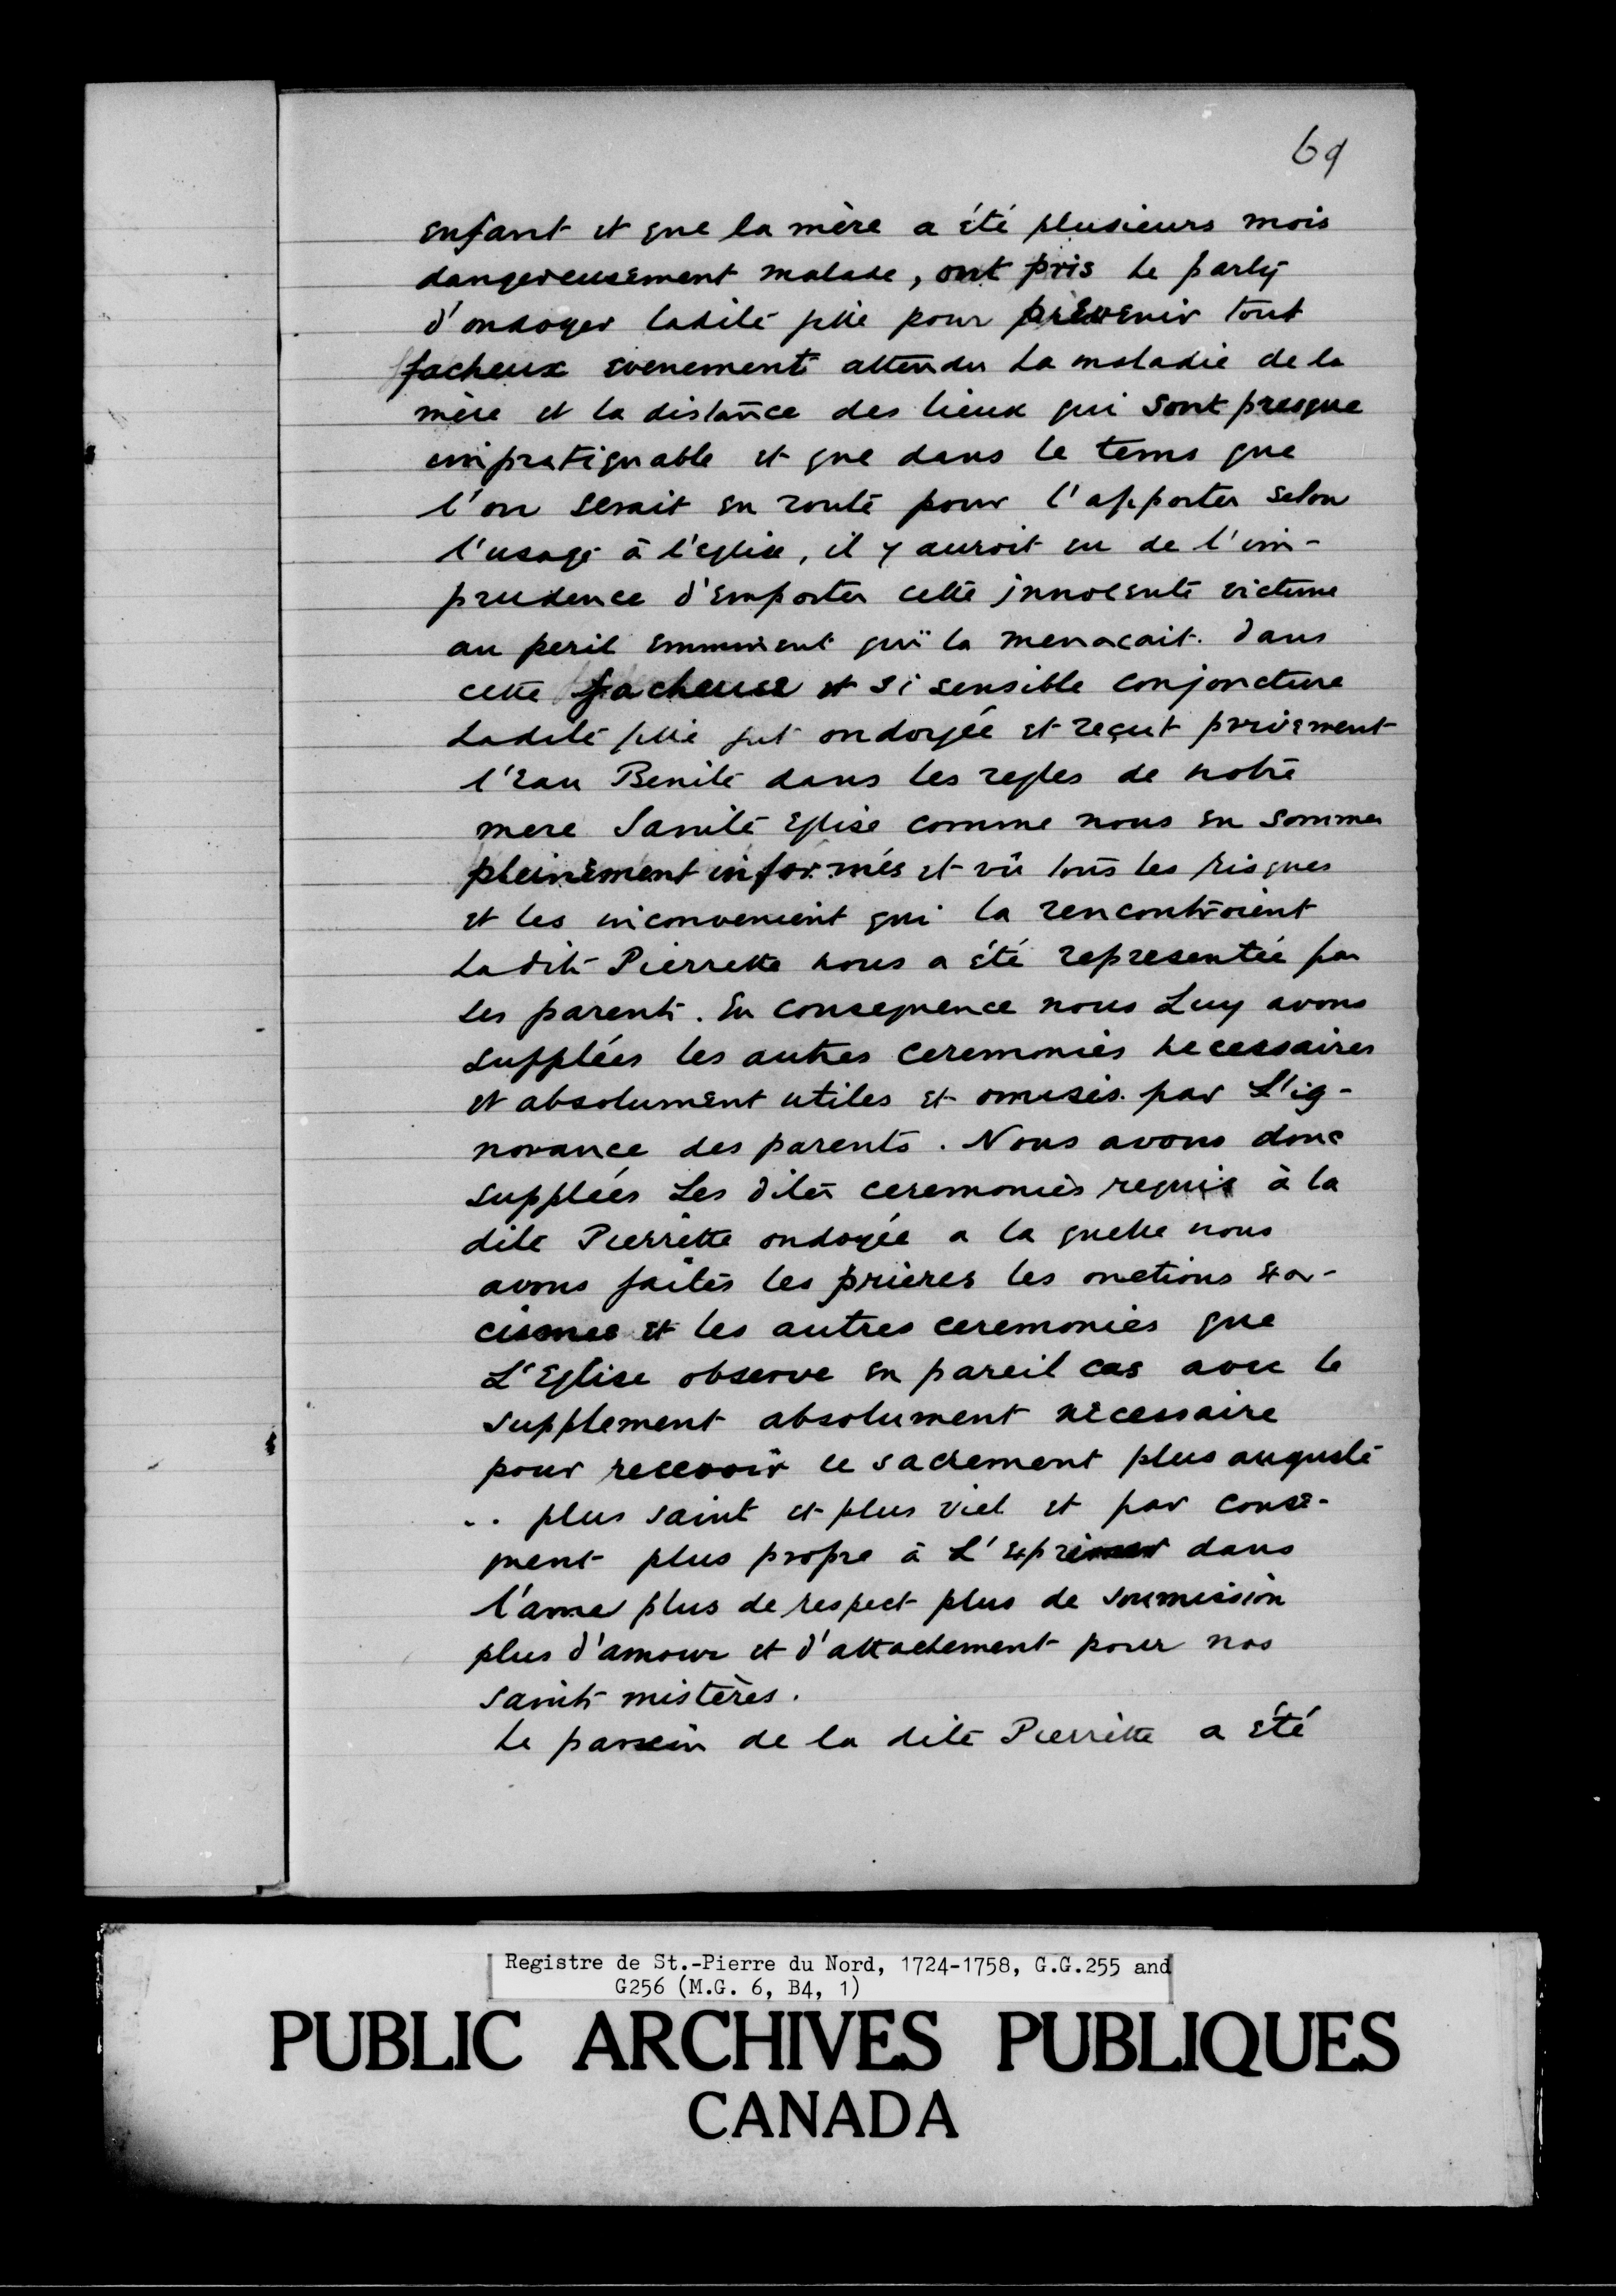 69
enfant et que la mère a été plusieurs mois
dangereusement malade, ont pris le party
d'ondoyer ladite fille pour prevenir tout
facheux evenement attendu la maladie de la
mère et la distance des lieux qui sont presque
impratiquable et que dans le tems que
l'on serait en route pour l'apporter selon
l'usage à l'eglise, il y auroit eu de l'im-
prudence d'emporter cette innocente victime
au peril emminent qui la menacait. Dans
cette facheuse et si sensible conjoncture
Ladite fille fut ondoyée et reçut privement
l'Eau Benite dans les regles de notre
mere Sainte Eglise comme nous en sommes
pleinement informés et vû tous les risques
et les inconvenient qui la rencontroient
Ladite Pierrette nous a été representée par
ses parents. En consequence nous Luy avons
supplées les autres ceremonies necessaires
et absolument utiles et omises par L'ig-
norance des parents. Nous avons donc
supplées Les dites ceremonies requis à la
dite Pierrette ondoyée a la quelle nous
avons faites les prieres les onctions exor-
cismes et les autres ceremonies que
L'Eglise observe en pareil cas avec le
supplement absolument necessaire
pour recevoir ce sacrement plus auguste
.. plus saint et plus viel et par conse-
ment plus propre à L'exprimer dans
l'ame plus de respect plus de soumission
plus d'amour et d'attachement pour nos
saints mistères.
Le parrein de la dite Pierrette a été
Registre de St.-Pierre du Nord, 1724-1758, G.G.255 and
G256 (M.G. 6, B4, 1)
PUBLIC ARCHIVES PUBLIQUES
CANADA